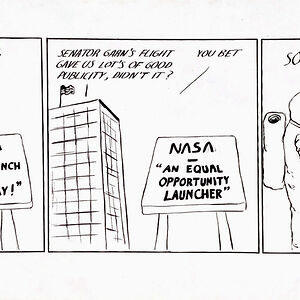 NCH
AY!"
SENATOR GARN'S FLIGHT
GAVE US LOT'S OF GOOD
PUBLICITY, DIDN'T IT?
YOU BET
NASA
—
"AN EQUAL
OPPORTUNITY
LAUNCHER"
SO